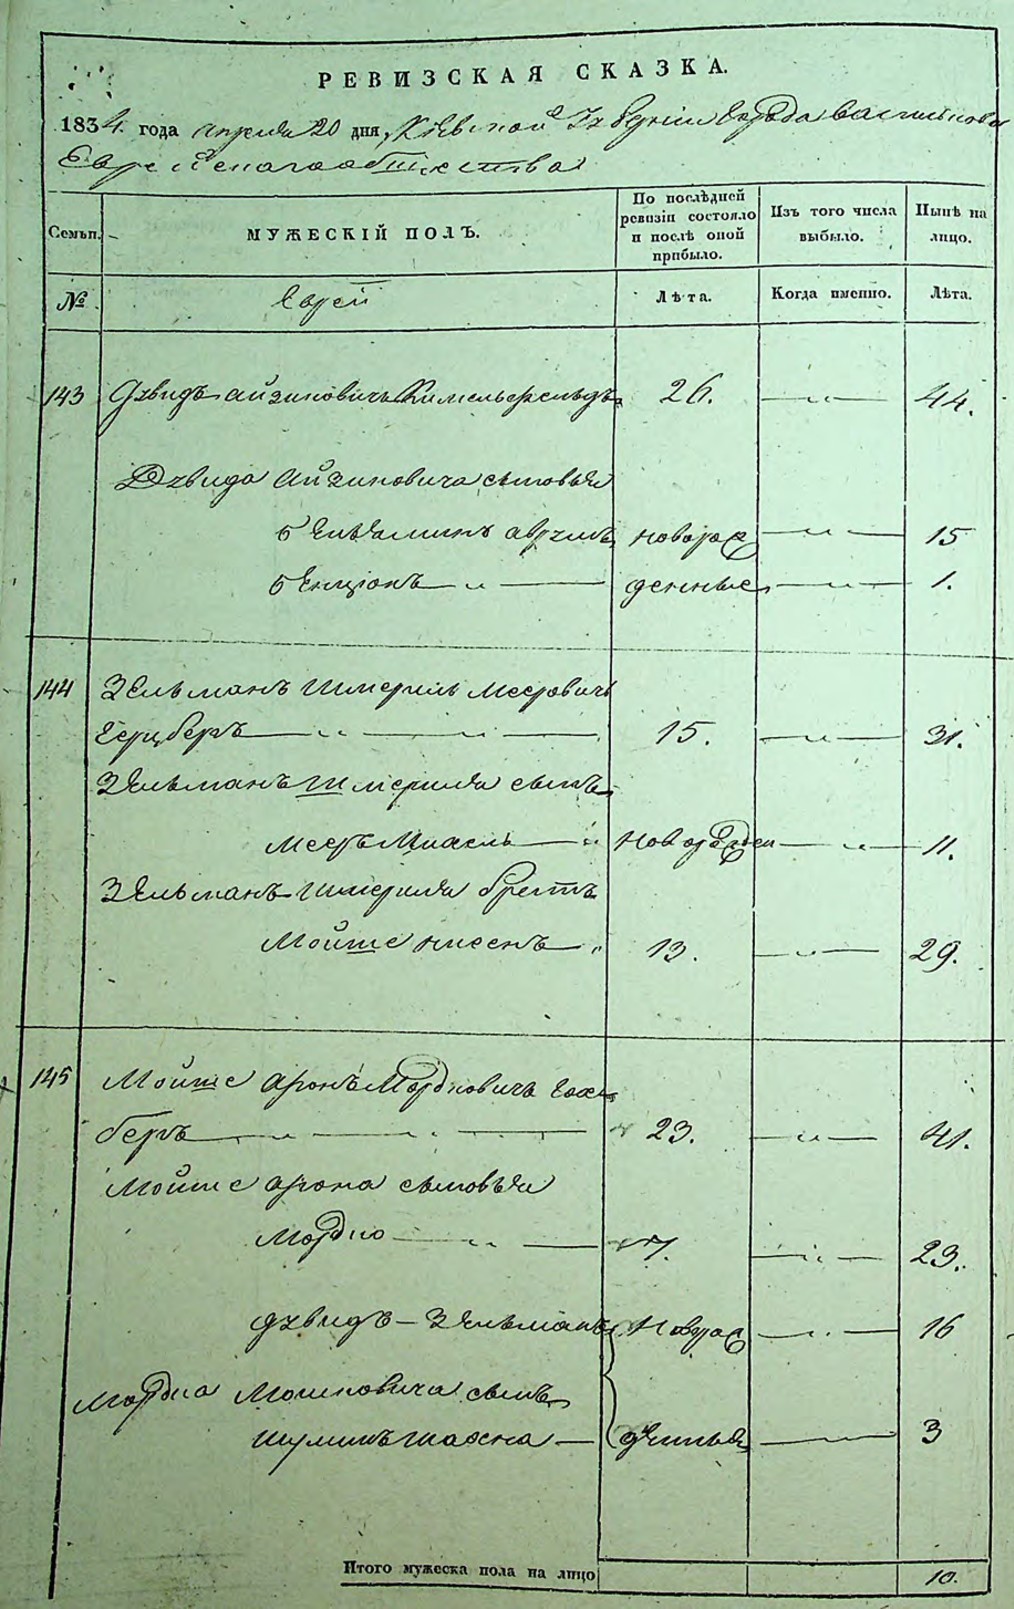 РЕВИЗСКАЯ СКАЗКА.
1834. года апреля 20 дня, Кіевской Губерніи города Василькова
Еврейскаго общества
Семьи.
МУЖЕСКІЙ ПОЛЪ.
По послѣдней ревизіи состояло и послѣ оной прибыло.
Изъ того числа выбыло.
Нынѣ на лицо.
№
Еврей
Лѣта.
Когда именно.
Лѣта.
143 Давидъ Айзиковичъ Кимельфельдъ 26. 44.
Давида Айзиковича сыновья
Беньяминъ Аврумъ новорож 15
Бенціонъ денные 1.
144 Зельманъ Шмериль Мееровичъ
Герцберъ 15. 31.
Зельманъ Шмериля сынъ
Мееръ Михель новорожден 11.
Зельманъ Шмериля братъ
Мойше Нисенъ 13. 29.
145 Мойше Аронъ Мордковичъ
беръ 23. 41.
Мойше Арона сыновья
Мордко 7. 23.
Давидъ - Зельманъ Новорож 16
Мордка Мошковича сынъ
Шулимъ Шахна денные 3
Итого мужеска пола на лицо 10.